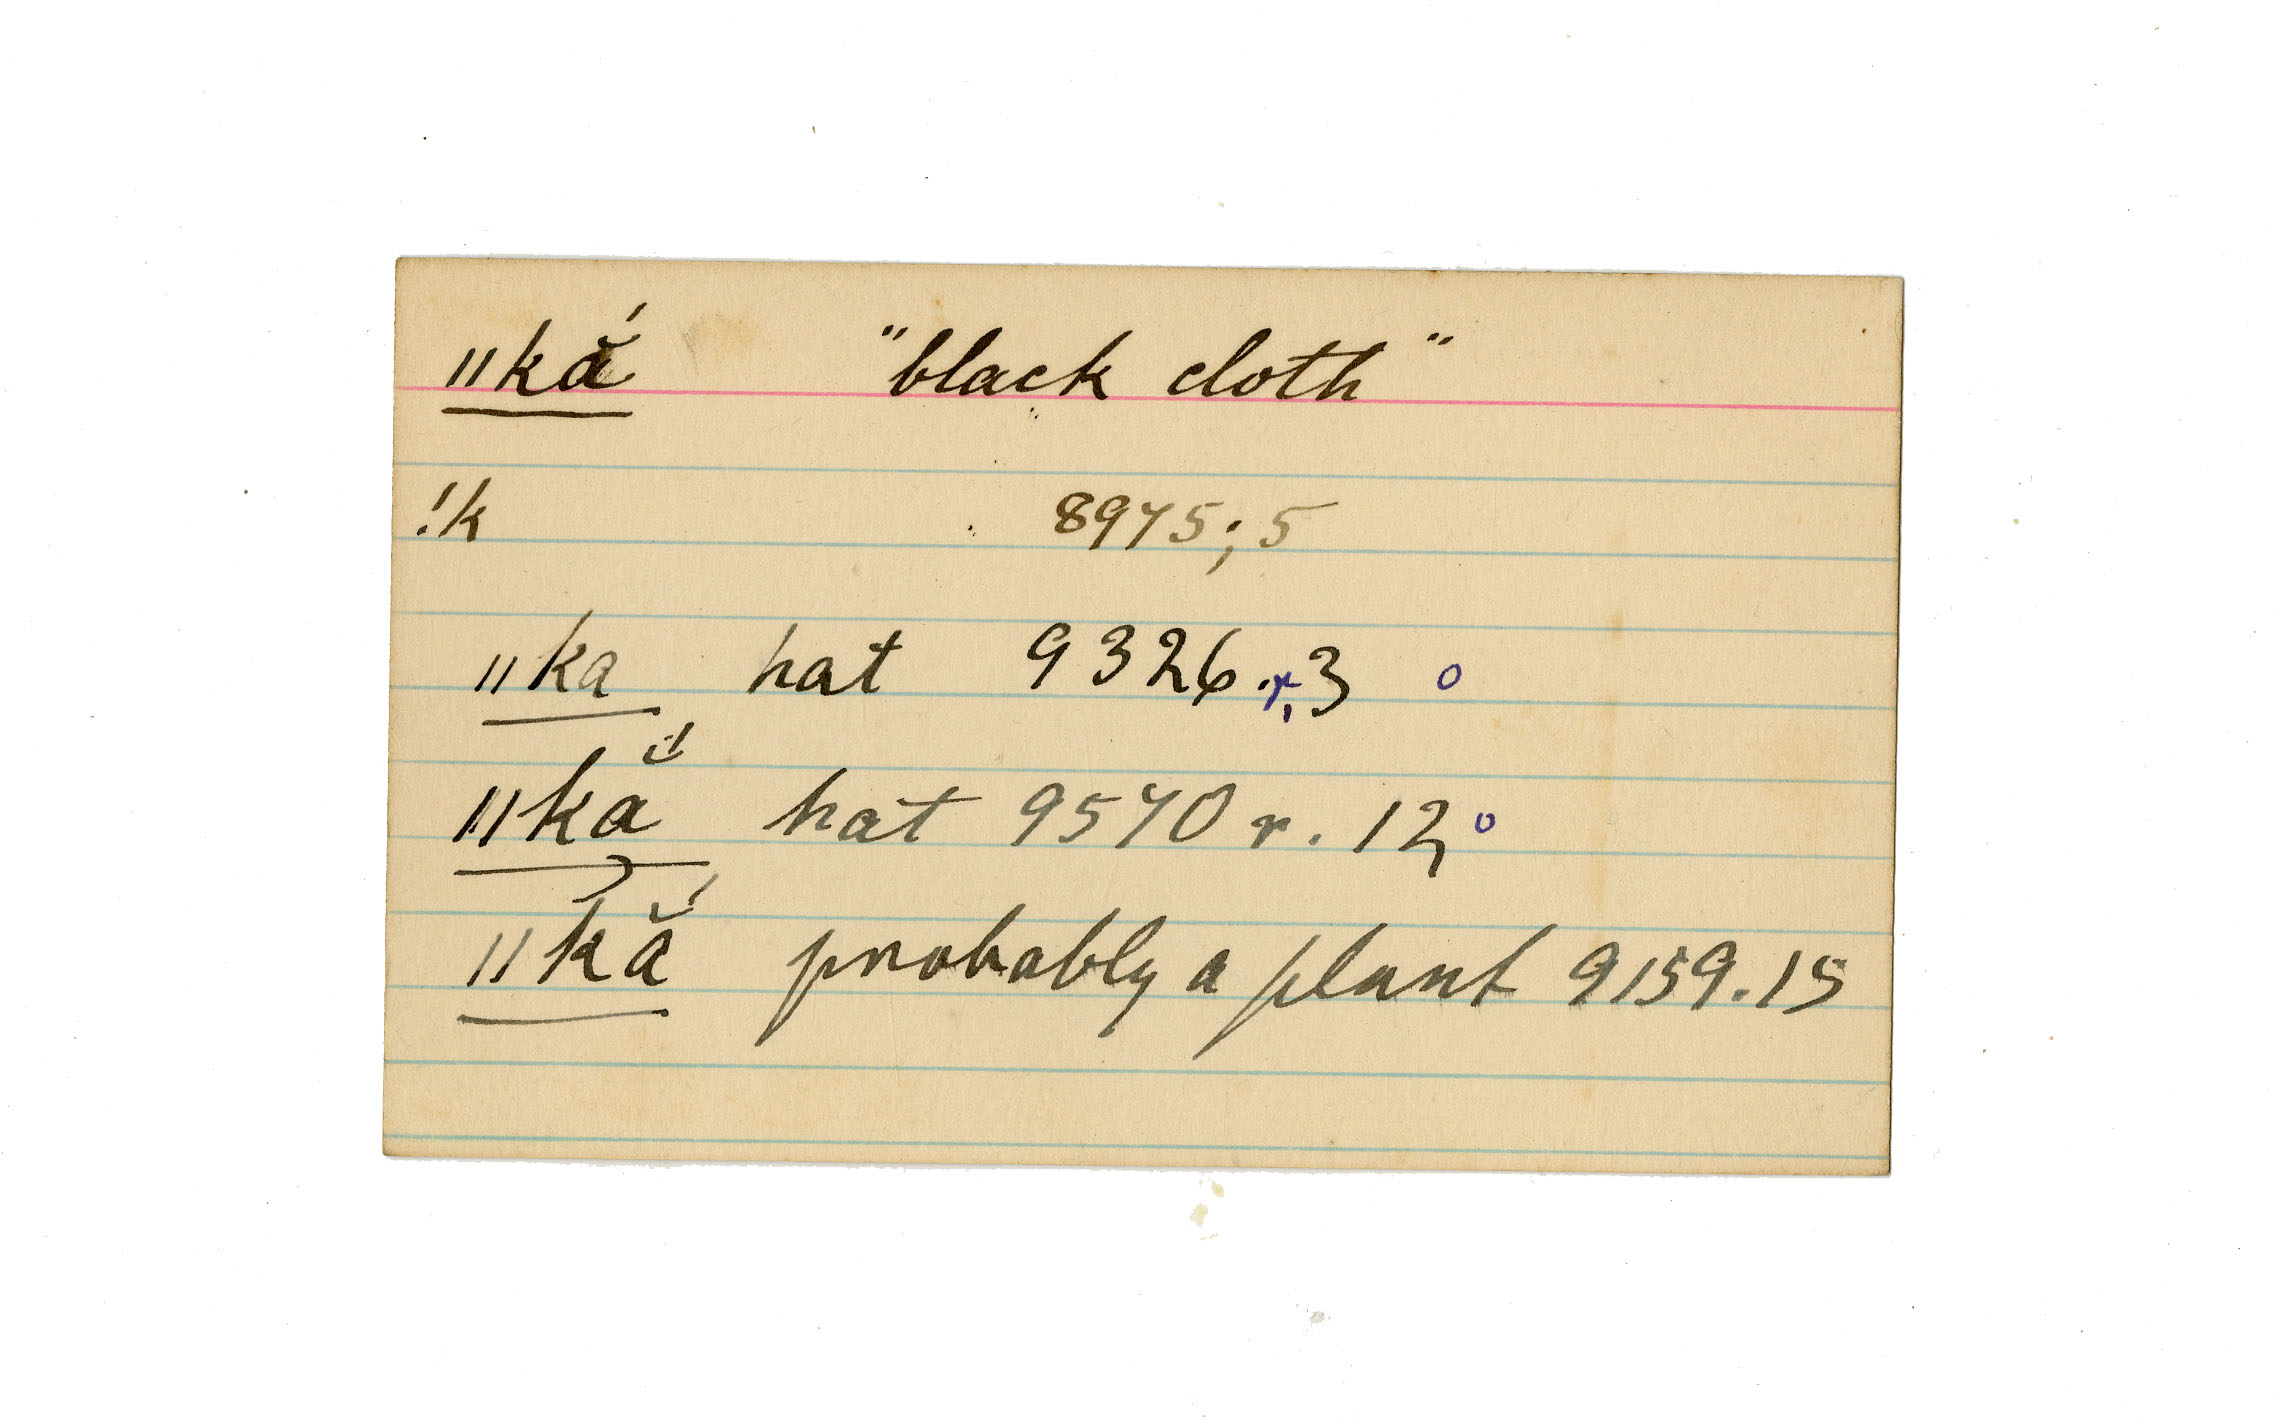 ǁkắ "black cloth"
!k 8975;5
ǁka hat 9326.r,3 o
ǁkắ hat 9570 r. 12 o
ǁkắ probably a plant 9159.15